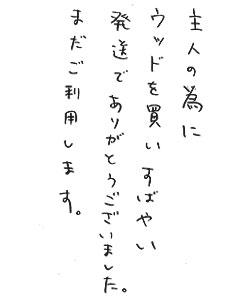 主人の為に
ウッドを買い すばやい
発送でありがとうございました。
まだご利用します。